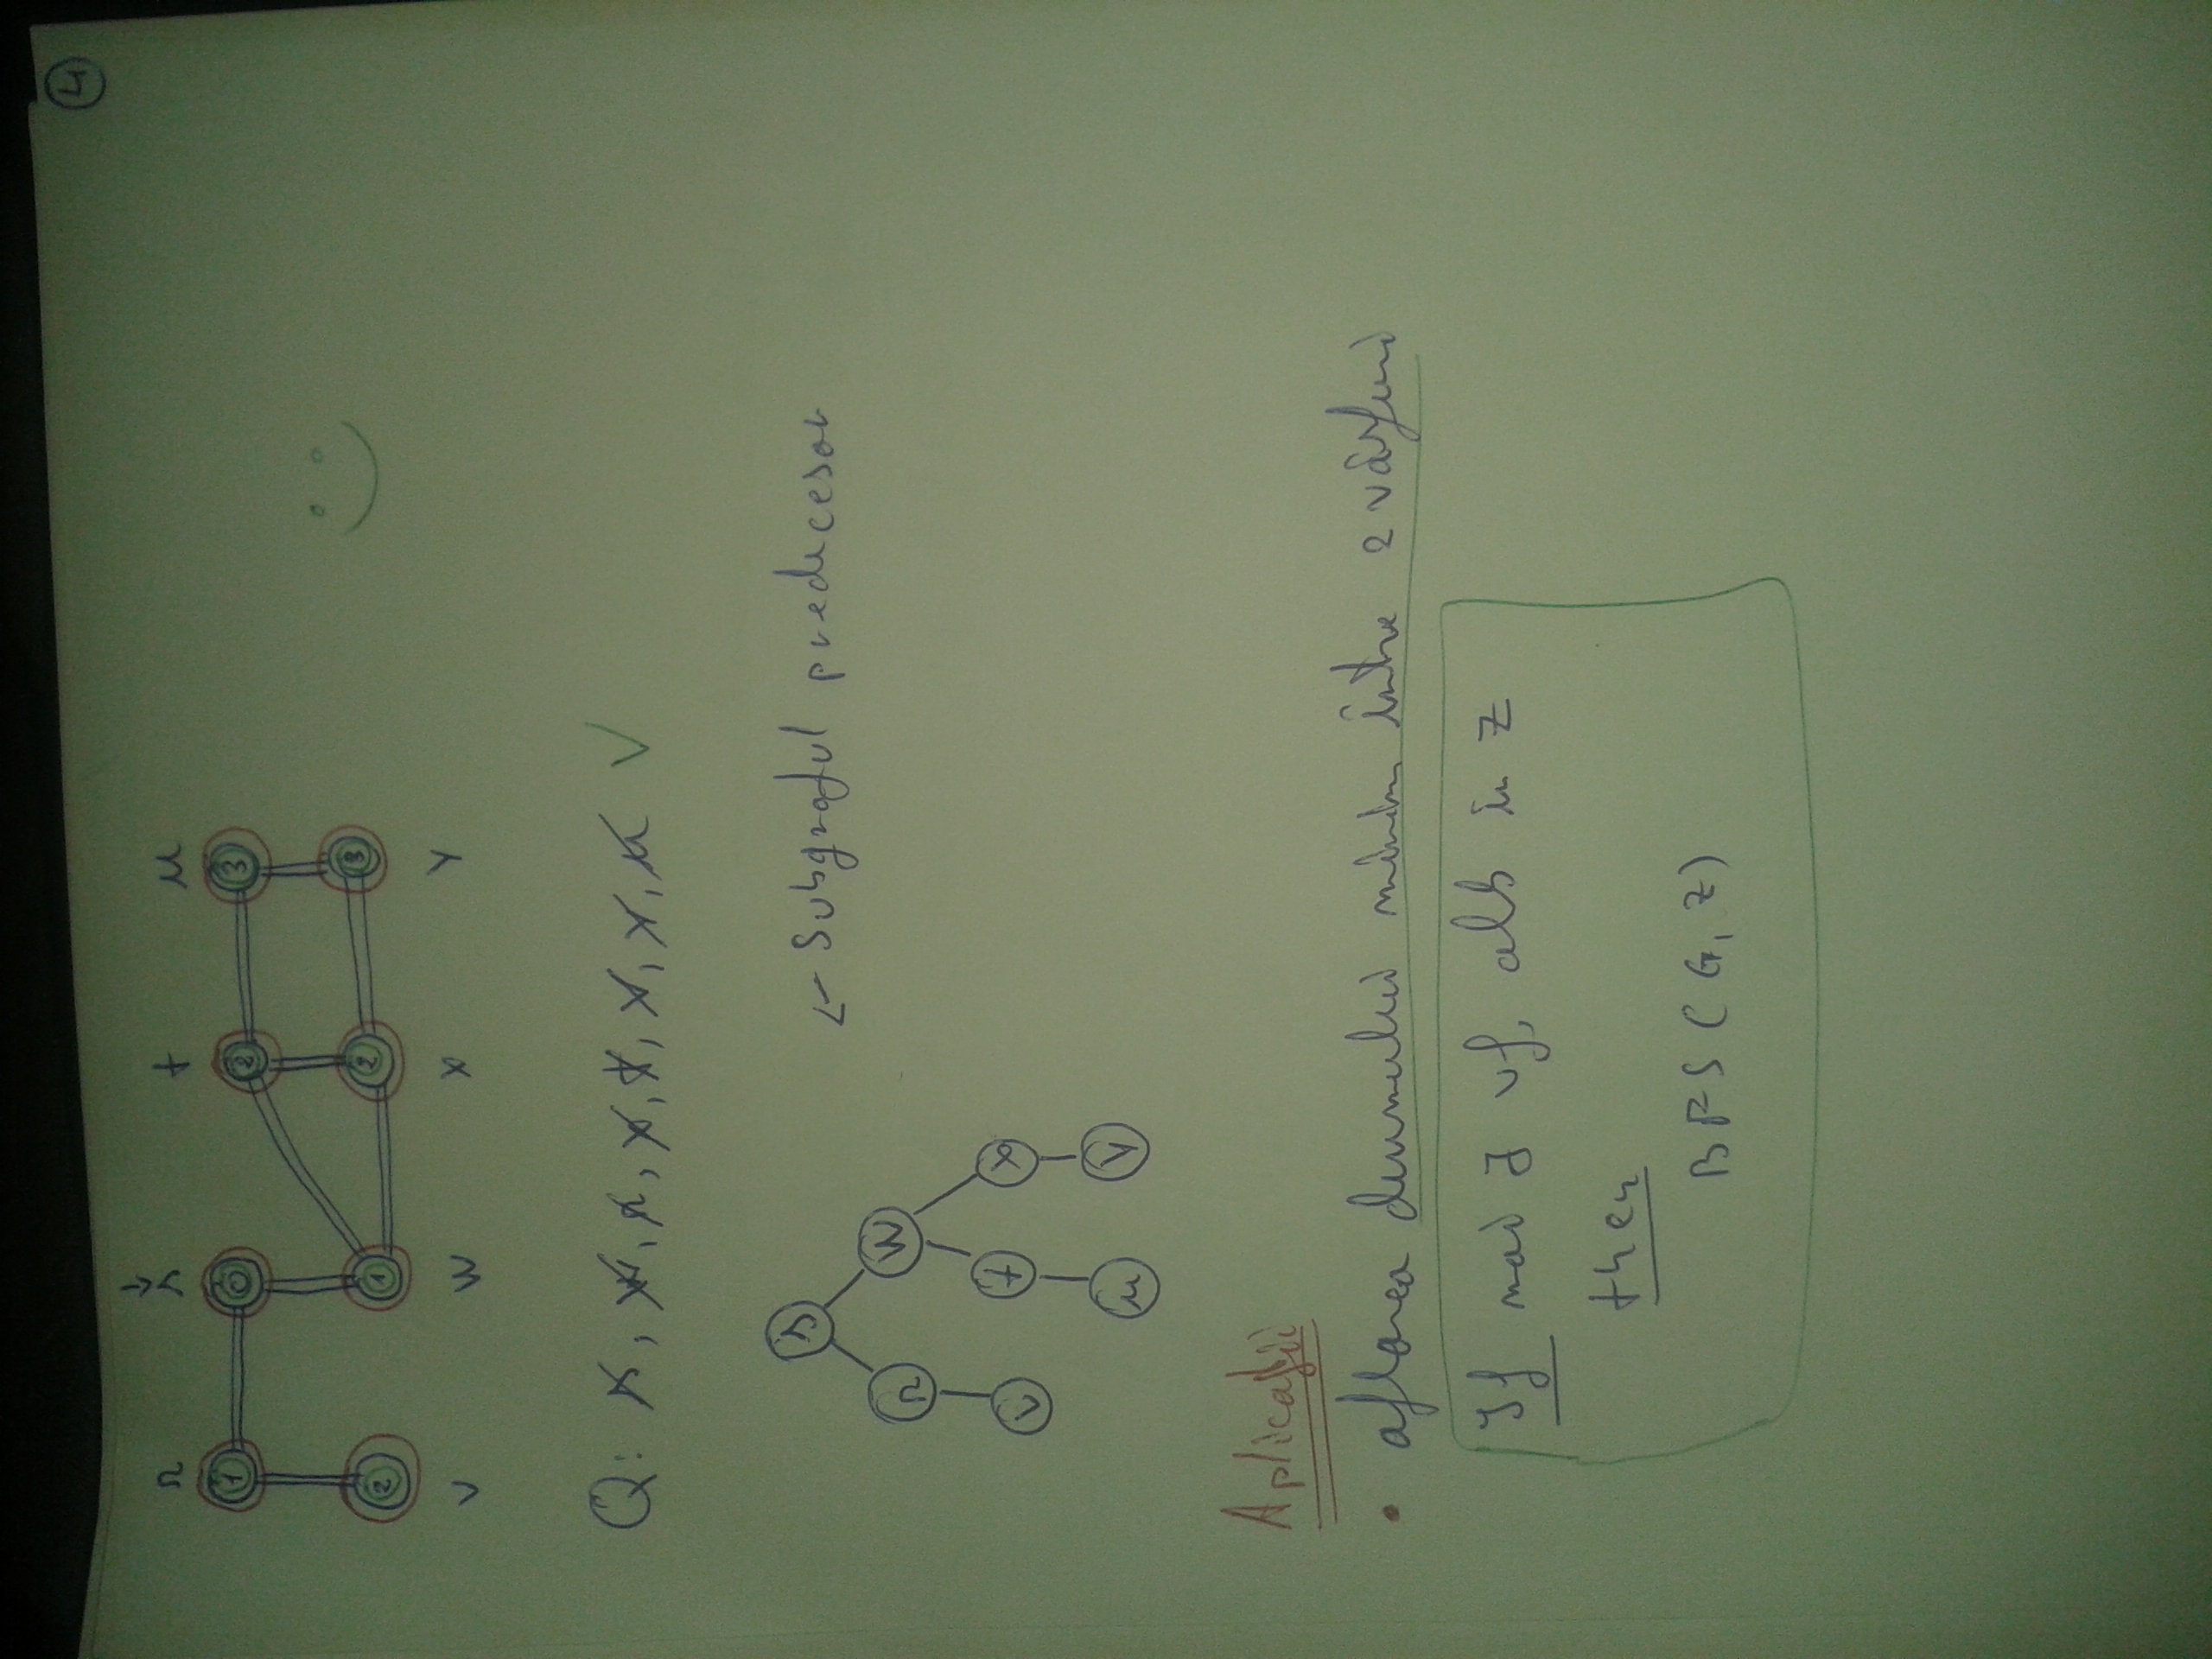 4
r s t u
1 0 2 3
2 1 2 3
v w x y
Q: s, w, r, x, t, v, y, u ✓
s
← Subgraful predecesor
r w
v t x
u y
Aplicații
• aflarea drumului minim între 2 vârfuri
If mai ∃ vf, alb in Z
then
BFS(G, Z)